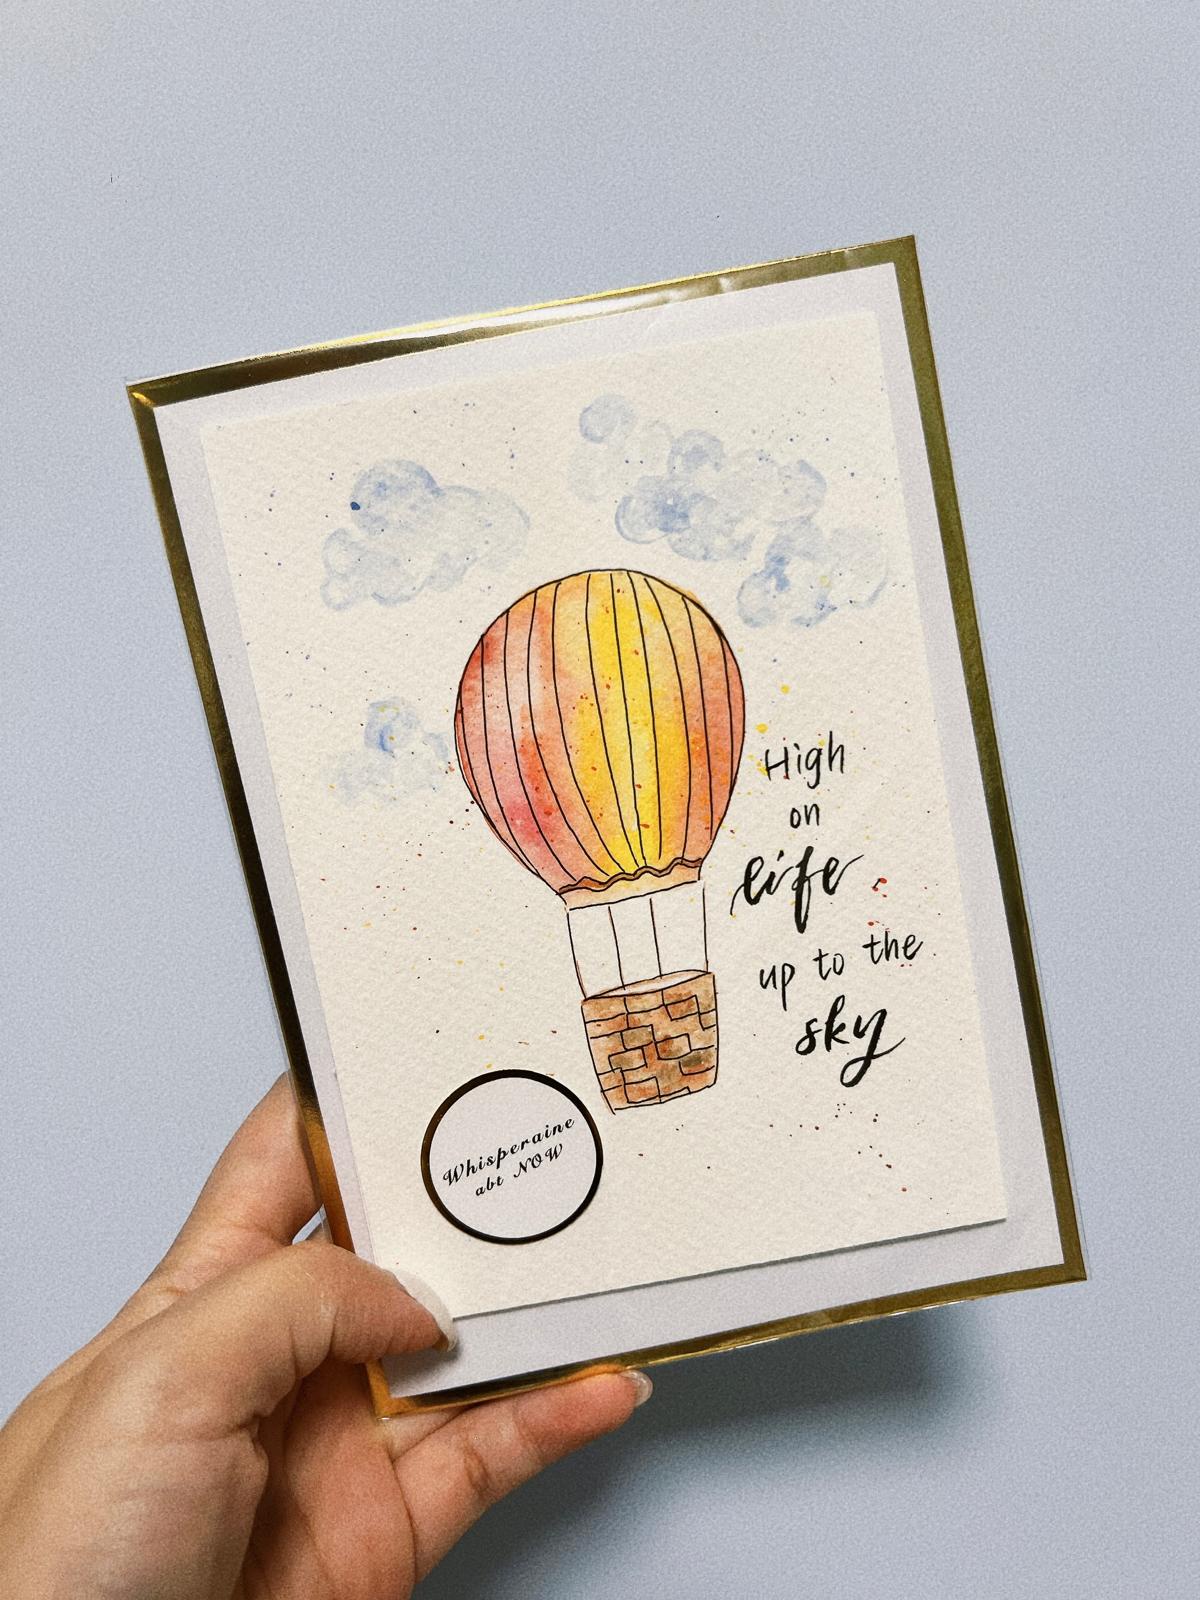 High
on
life
up to the
sky
Whisperaine
abt NOW